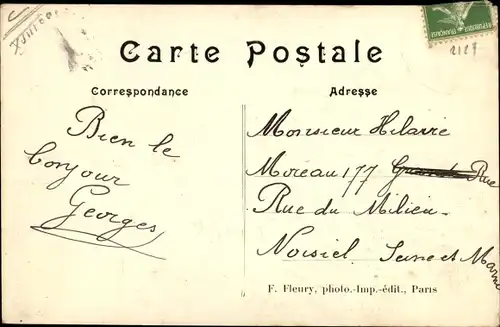 Carte Postale
Correspondance
Adresse
Bien le
bonjour
Georges
Monsieur Hilaire
Moreau 177 Grande Rue
Rue du Milieu
Noisiel. Seine et Marne
F. Fleury, photo.-Imp.-édit., Paris
2127